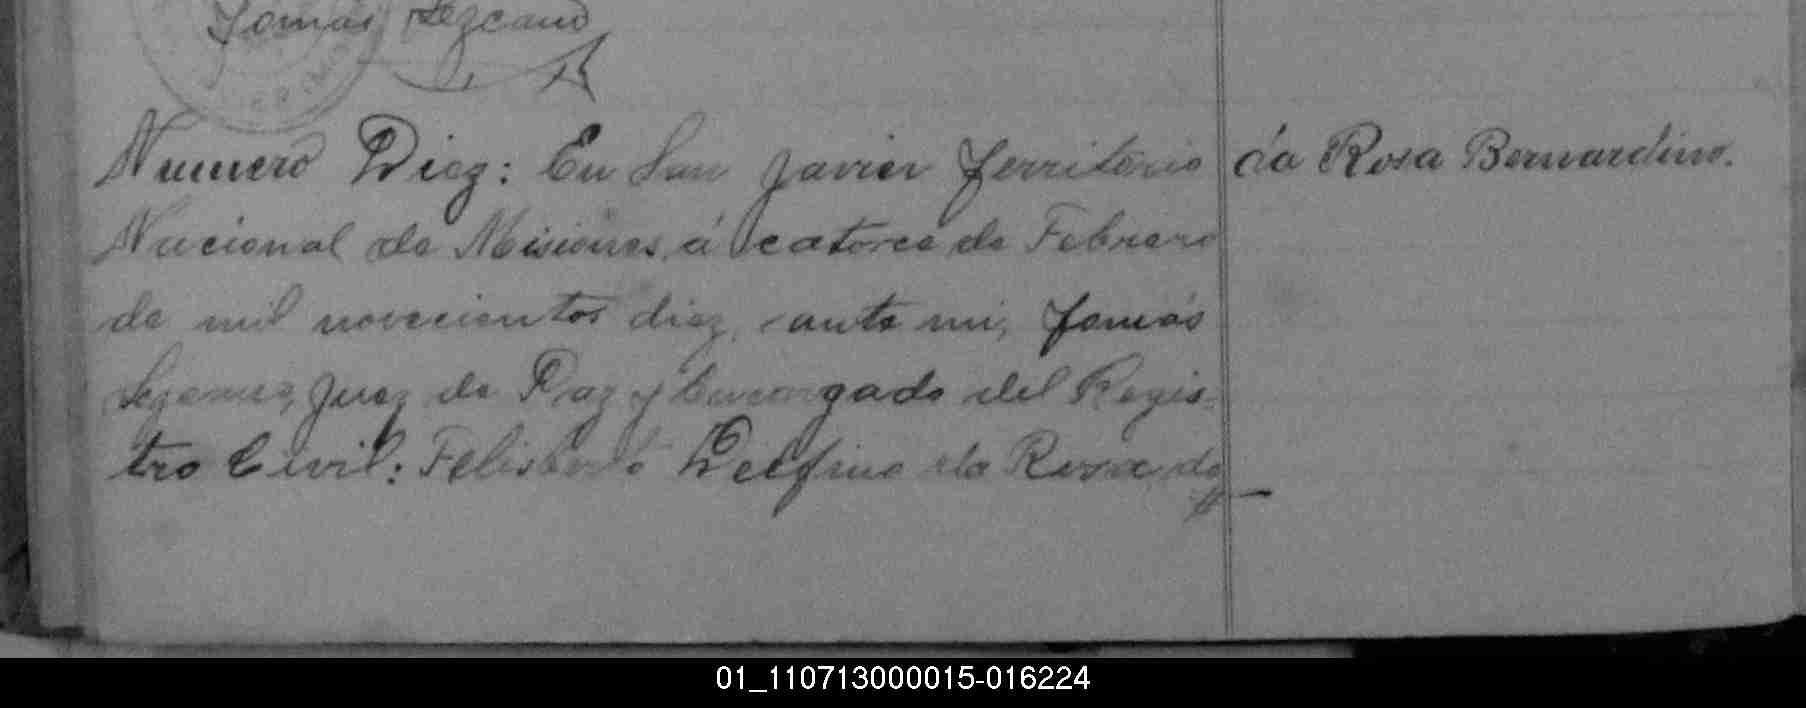 Tomás Lezcano
Numero Diez: En San Javier Territorio
Nacional de Misiones, á catorce de Febrero
de mil novecientos diez, ante mi, Tomás
Lezcano, Juez de Paz y Encargado del Regis-
tro Civil: Felisberto Delfino da Rosa, de
da Rosa Bernardino.
01_110713000015-016224